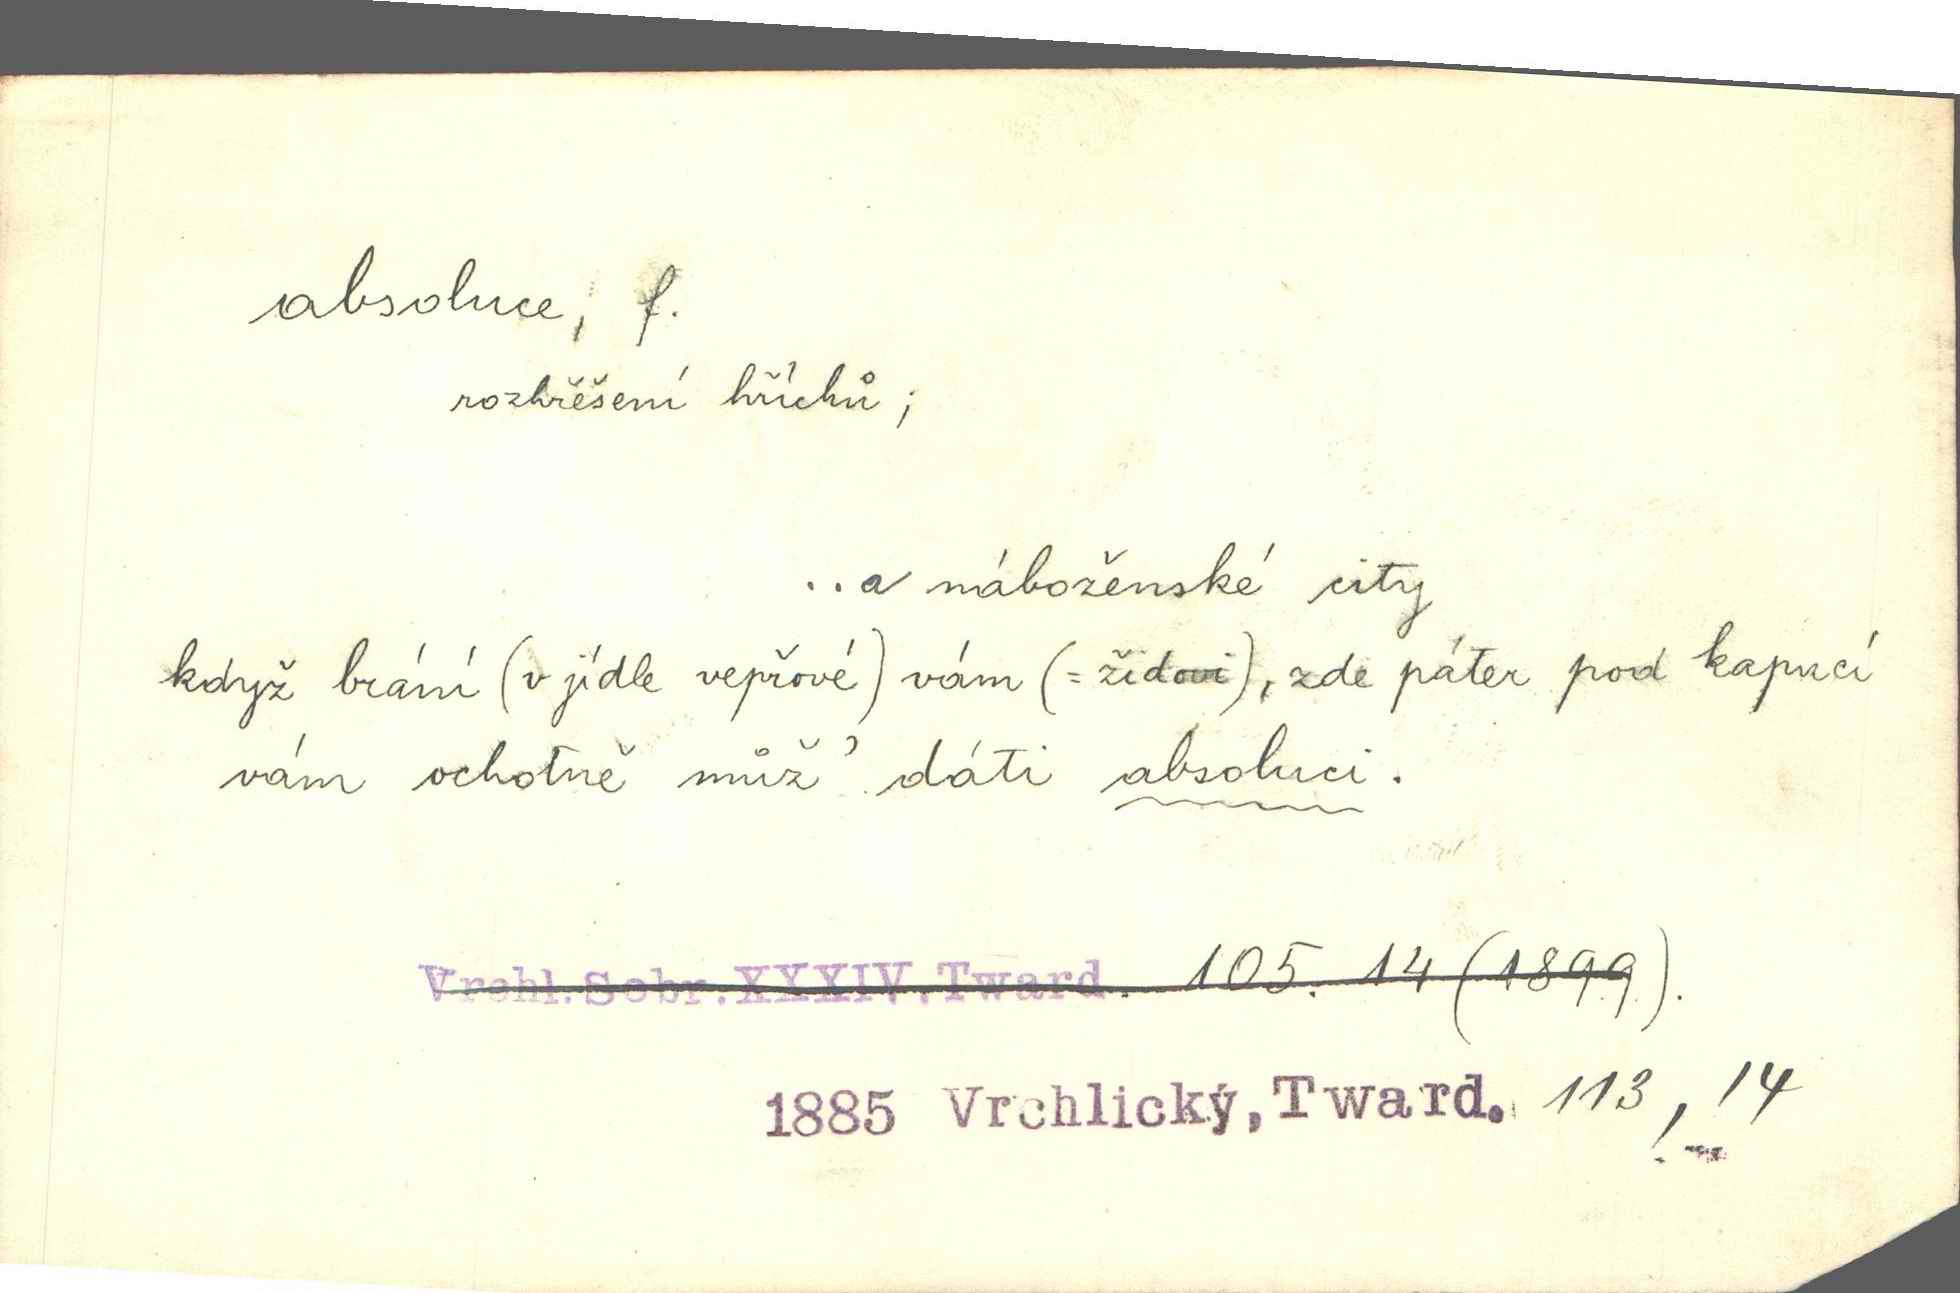 absoluce, f.
rozhřěšení hříchů;
..a náboženské city
když brání (v jídle vepřové) vám (=židovi), zde páter pod kapucí
vám ochotně můž' dáti absoluci.
Vrchl. Sebr. XXXIV. Tward. 105. 14 (1899).
1885 Vrchlický, Tward. 113, 14